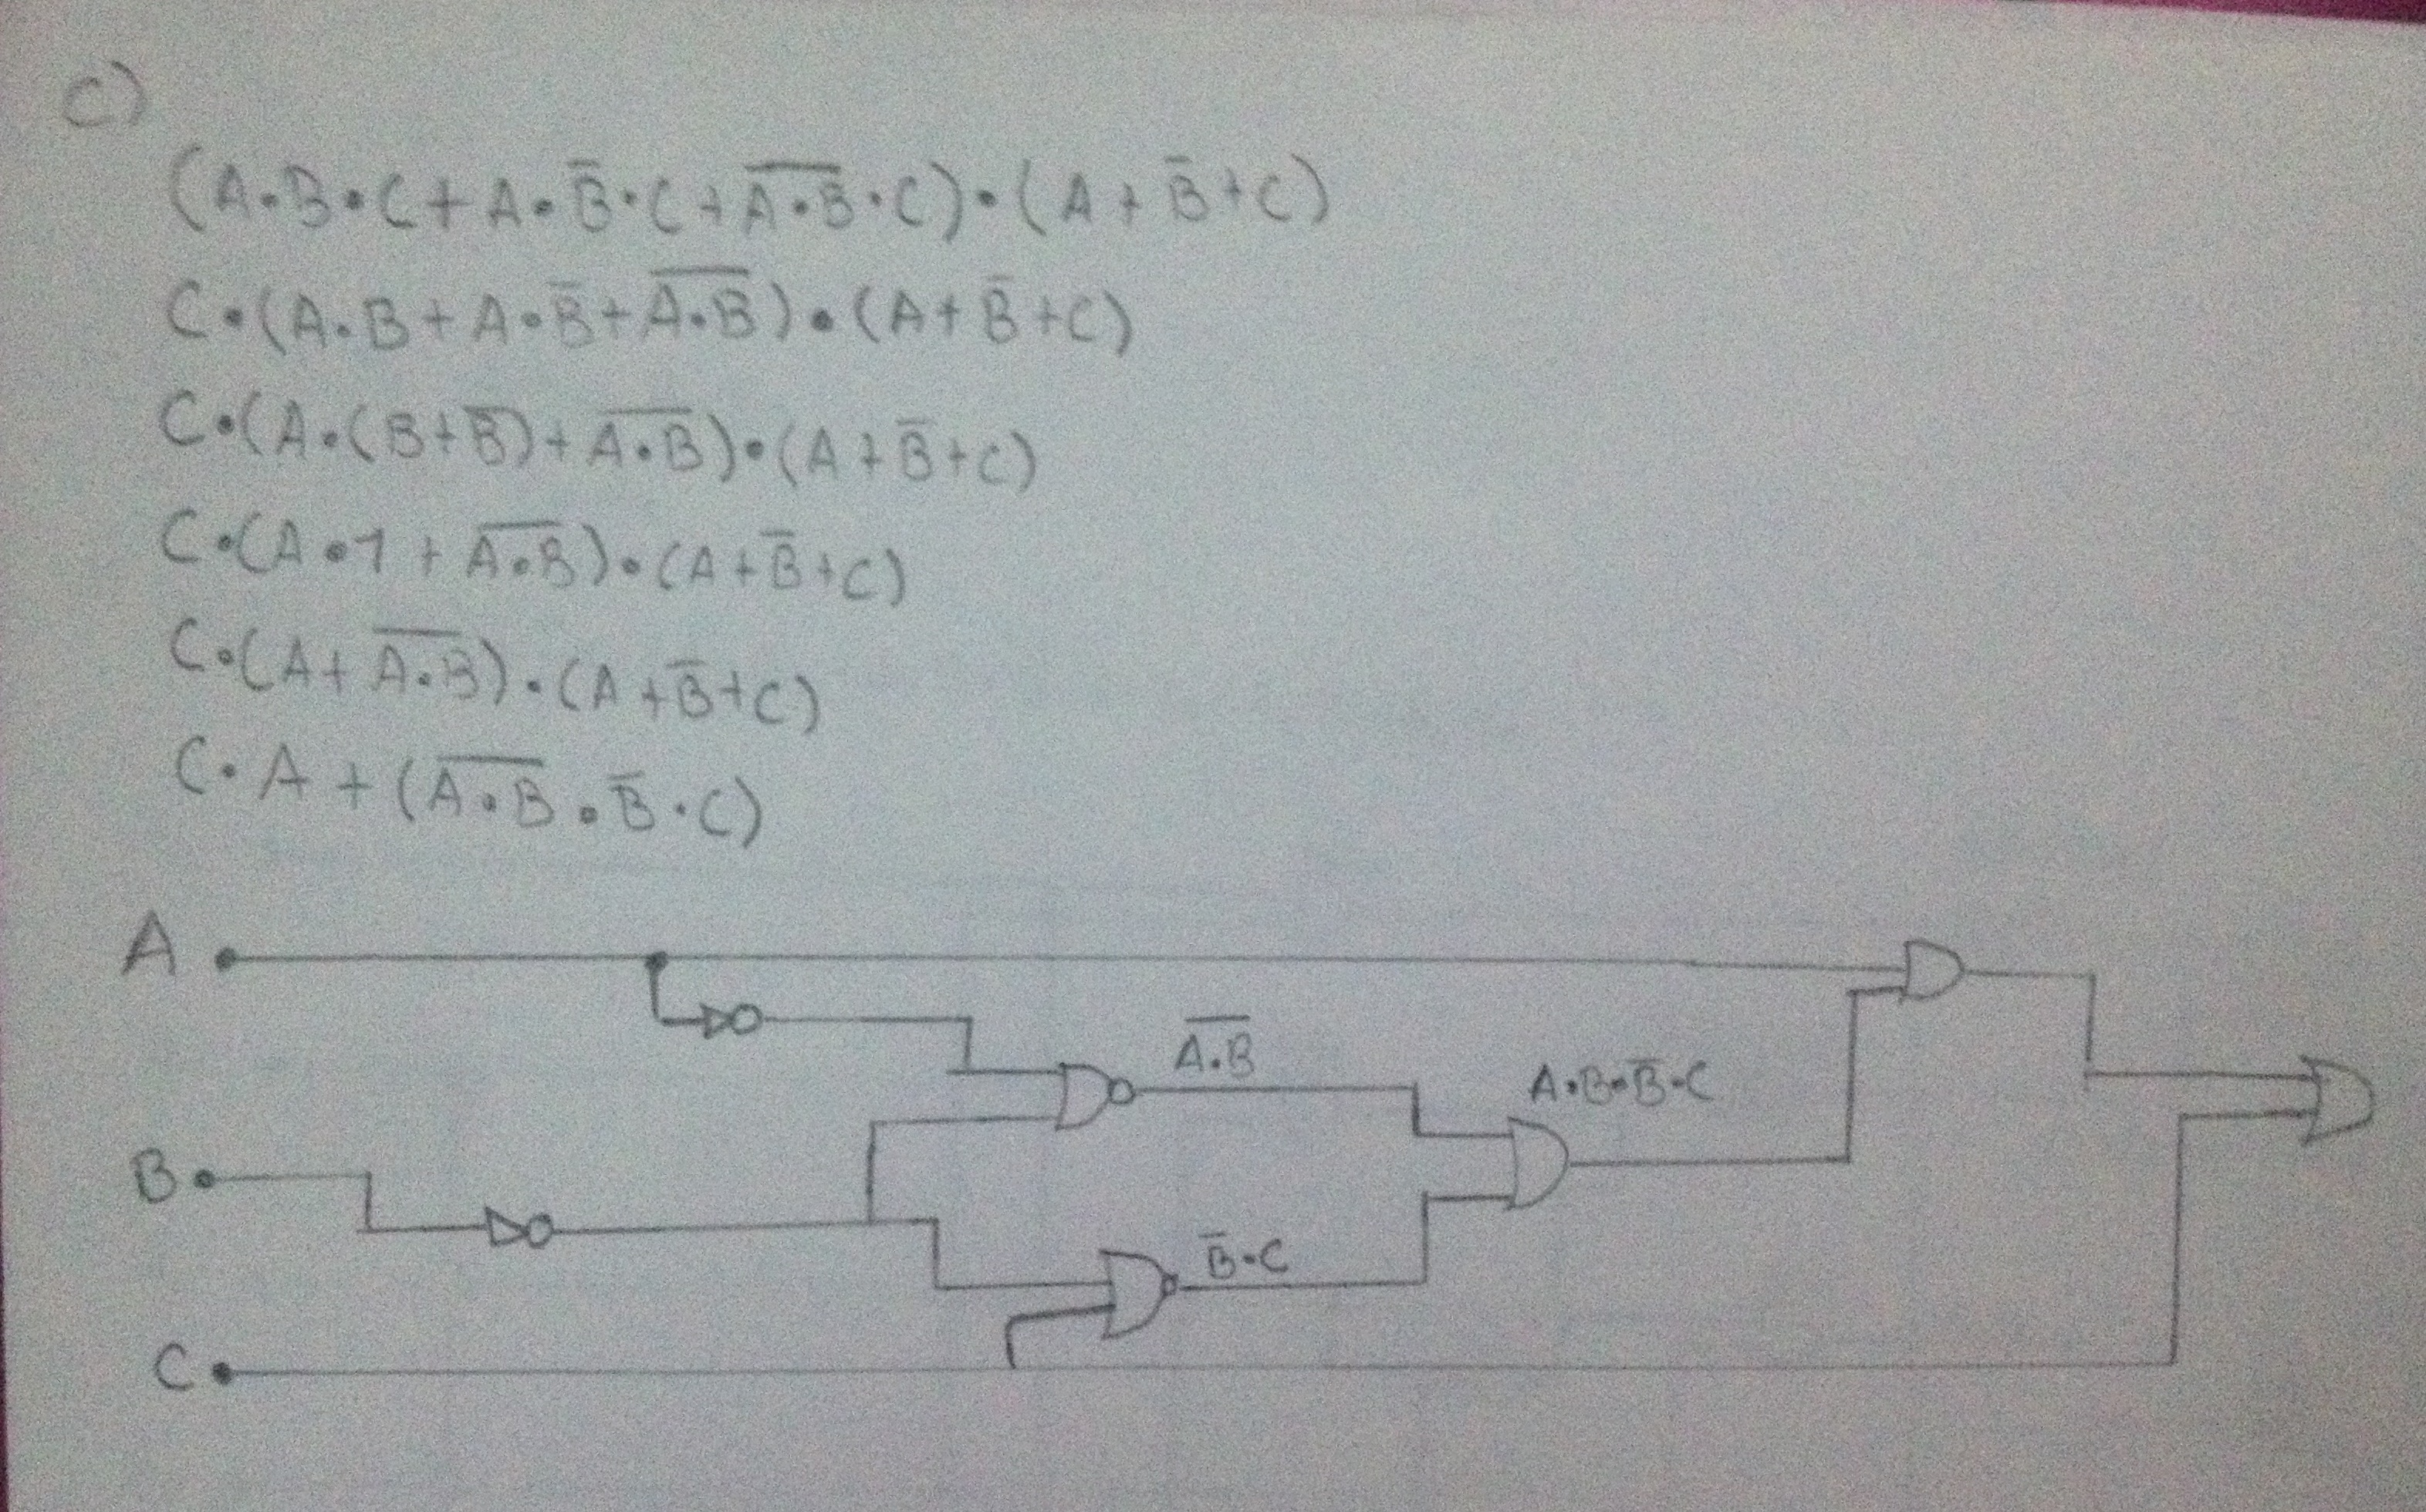 C)
(A•B•C + A•B̅•C + A̅•̅B̅•C)•(A + B̅ + C)
C•(A•B + A•B̅ + A̅•̅B̅)•(A + B̅ + C)
C•(A•(B + B̅) + A̅•̅B̅)•(A + B̅ + C)
C•(A•1 + A̅•̅B̅)•(A + B̅ + C)
C•(A + A̅•̅B̅)•(A + B̅ + C)
C•A + (A̅•̅B̅•B̅•C)
A
A̅•̅B̅
A•B•B̅•C
B
B̅•C
C